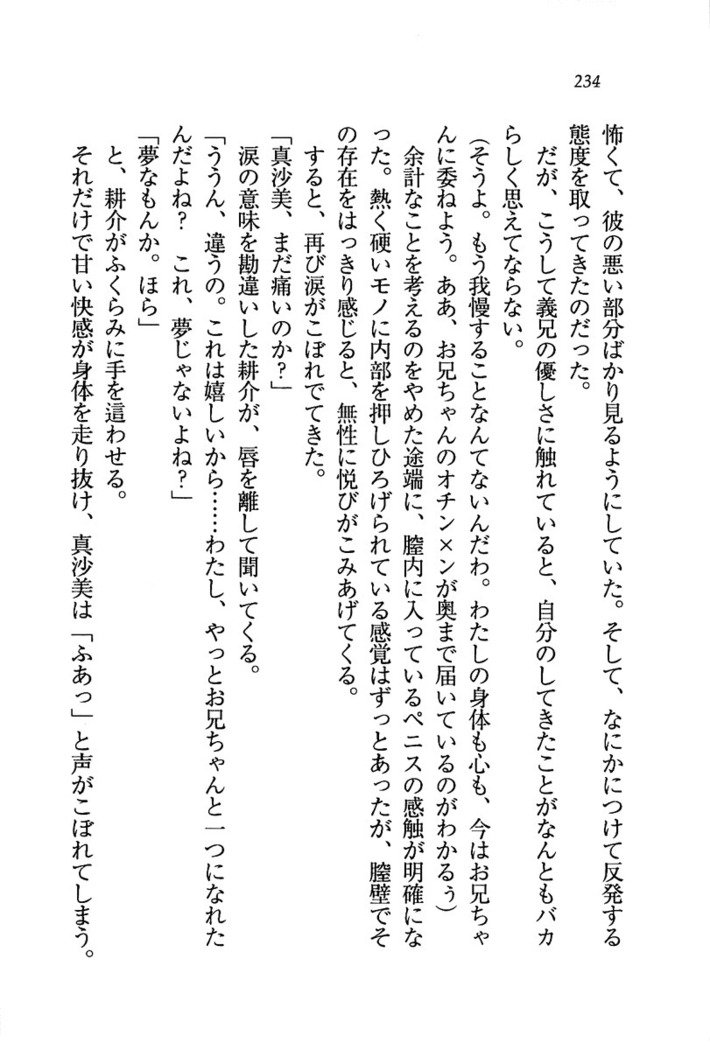 234
怖くて、彼の悪い部分ばかり見るようにしていた。そして、なにかにつけて反発する
態度を取ってきたのだった。
だが、こうして義兄の優しさに触れていると、自分のしてきたことがなんともバカ
らしく思えてならない。
（そうよ。もう我慢することなんてないんだわ。わたしの身体も心も、今はお兄ちゃ
んに委ねよう。ああ、お兄ちゃんのオチン×ンが奥まで届いているのがわかるぅ）
余計なことを考えるのをやめた途端に、膣内に入っているペニスの感触が明確にな
った。熱く硬いモノに内部を押しひろげられている感覚はずっとあったが、膣壁でそ
の存在をはっきり感じると、無性に悦びがこみあげてくる。
すると、再び涙がこぼれでてきた。
「真沙美、まだ痛いのか？」
涙の意味を勘違いした耕介が、唇を離して聞いてくる。
「ううん、違うの。これは嬉しいから……わたし、やっとお兄ちゃんと一つになれた
んだよね？　これ、夢じゃないよね？」
「夢なもんか。ほら」
と、耕介がふくらみに手を這わせる。
それだけで甘い快感が身体を走り抜け、真沙美は「ふあっ」と声がこぼれてしまう。